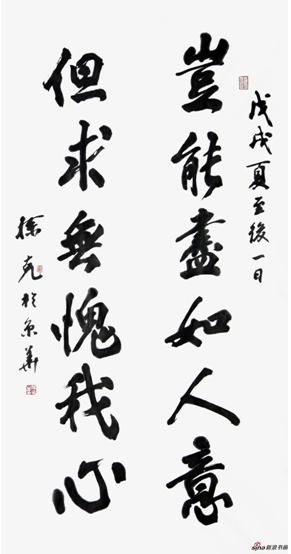 戊戌夏至後一日
豈能盡如人意
但求無愧我心
徐 於京華
sina 新浪书画